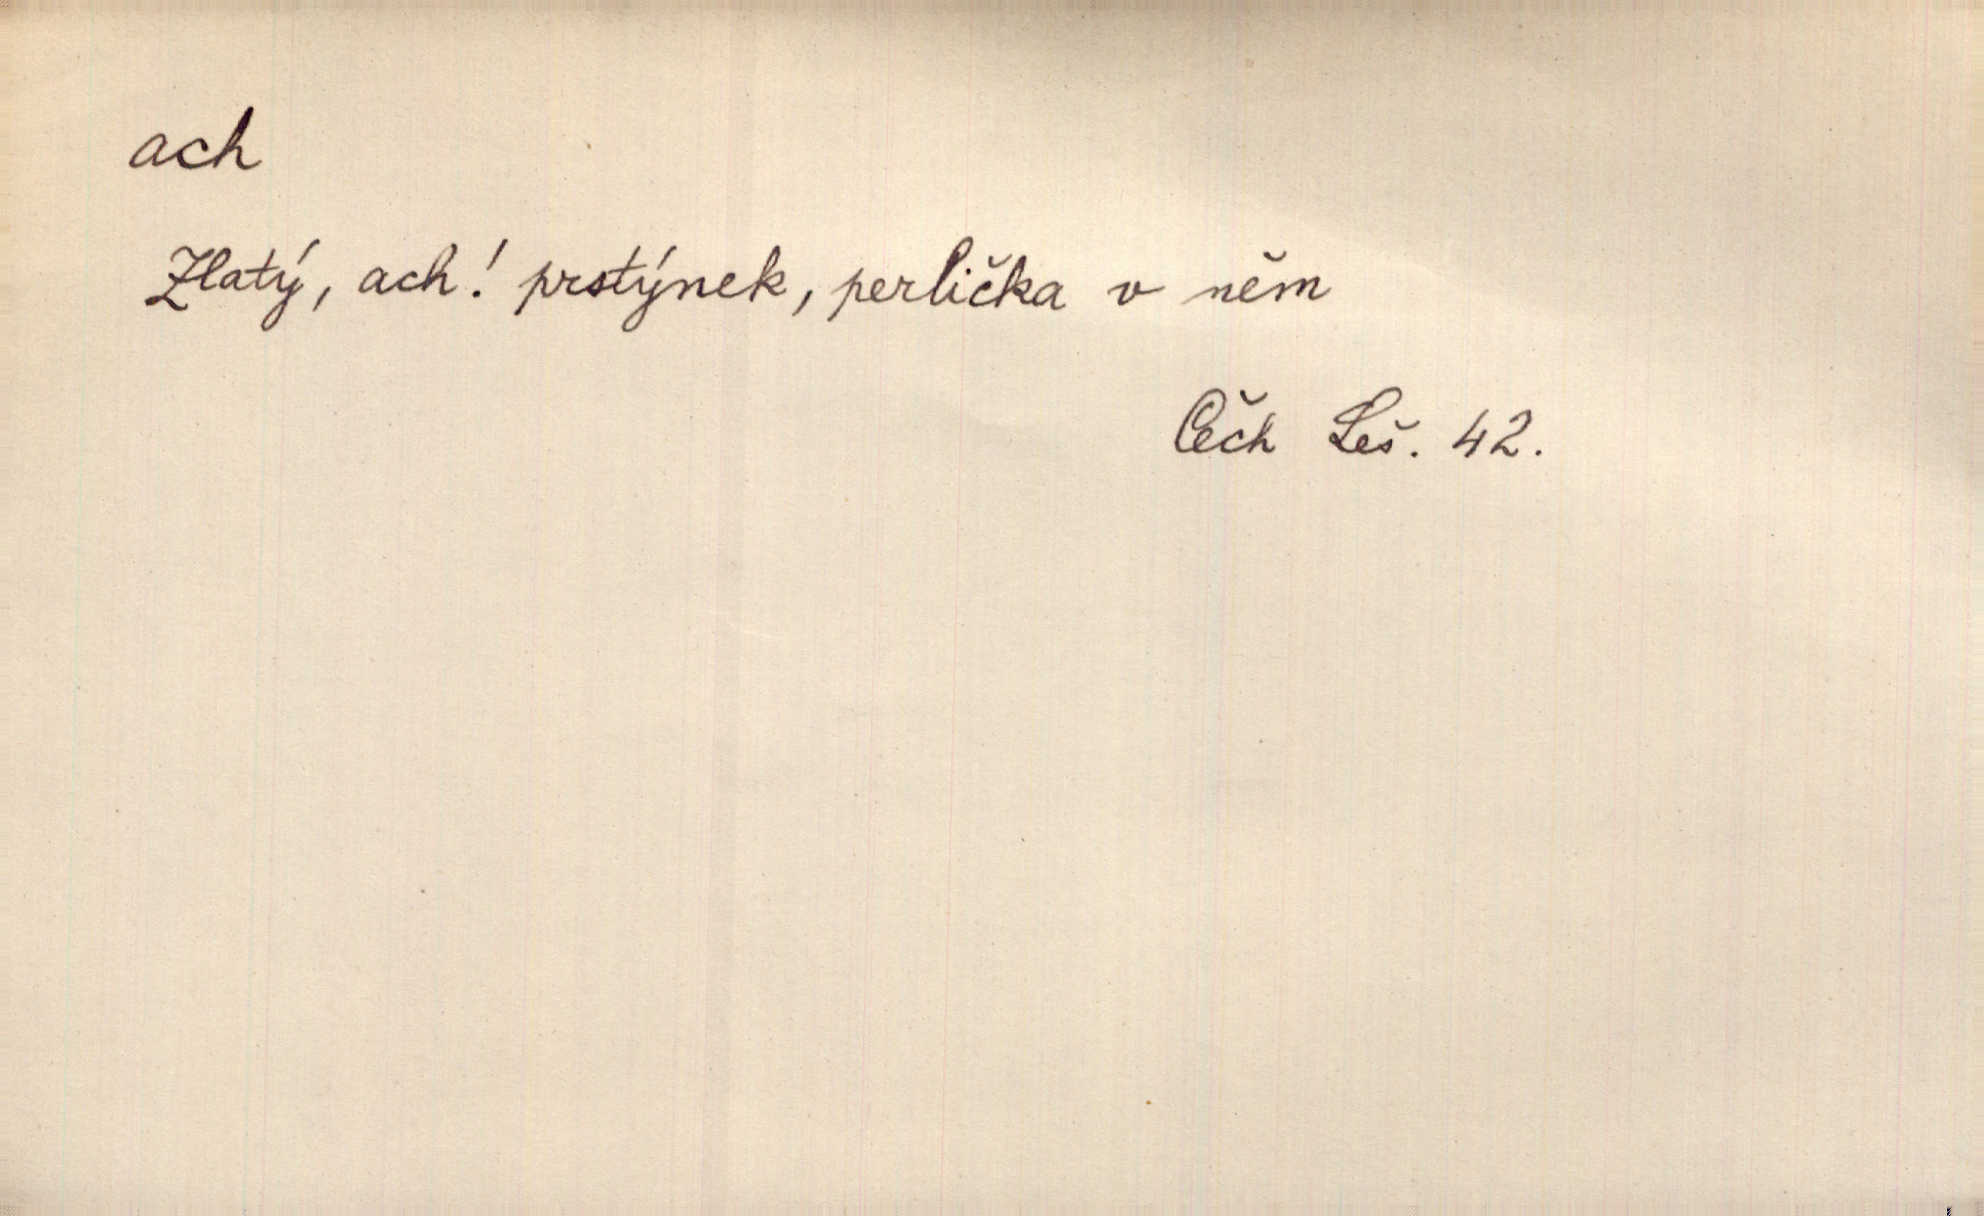 ach
Zlatý, ach! prstýnek, perlička v něm
Čech Leš. 42.